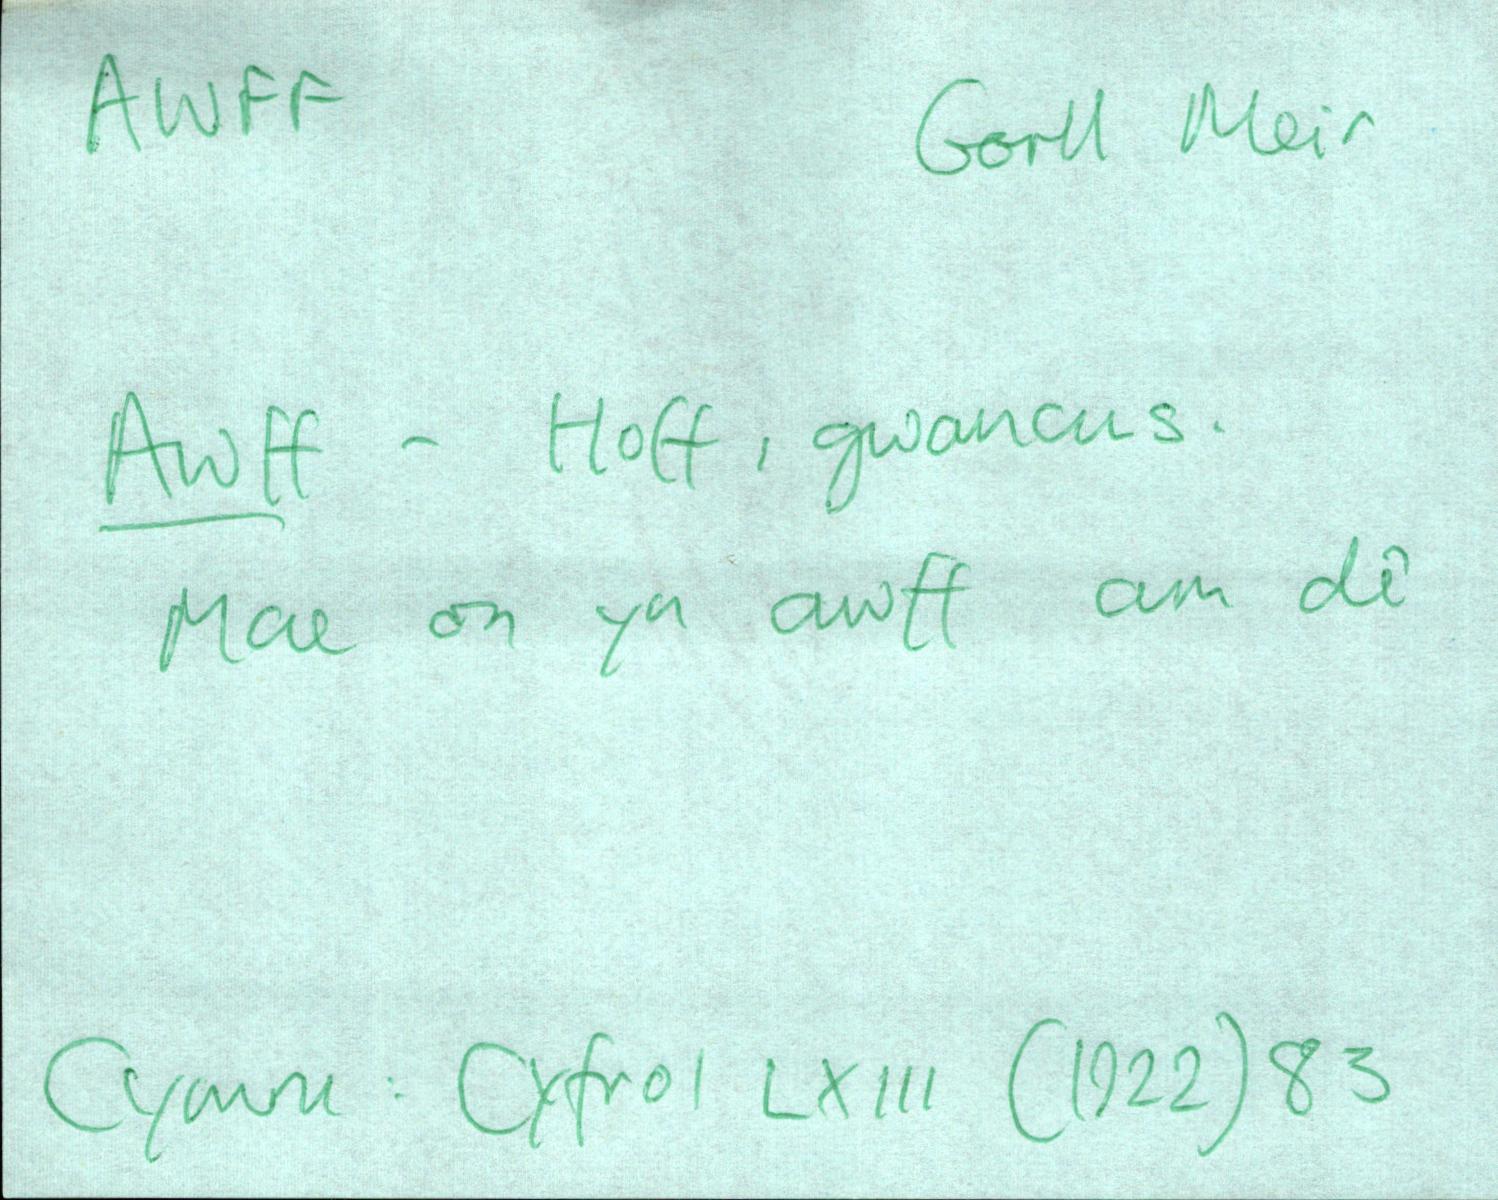 AWFF Gorll Meir
Awff - Hoff, gwancus.
Mae on yn awff am dê
Cymru : Cyfrol LXIII (1922) 83